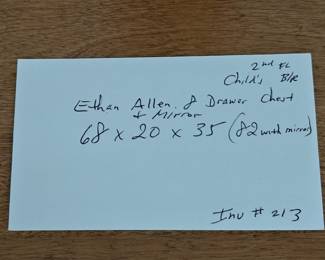 2nd FL
Child's B/R
Ethan Allen. 8 Drawer Chest
+ Mirror
68 x 20 x 35 (82 with mirror)
Inv # 213